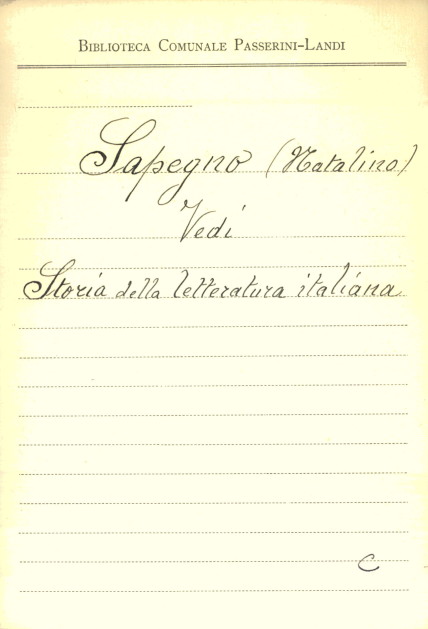 Biblioteca Comunale Passerini-Landi
Sapegno (Natalino)
Vedi
Storia della letteratura italiana
C